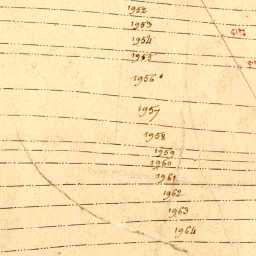 1952
1953
1954
1955
1956
1957
1958
1959
1960
1961
1962
1963
1964